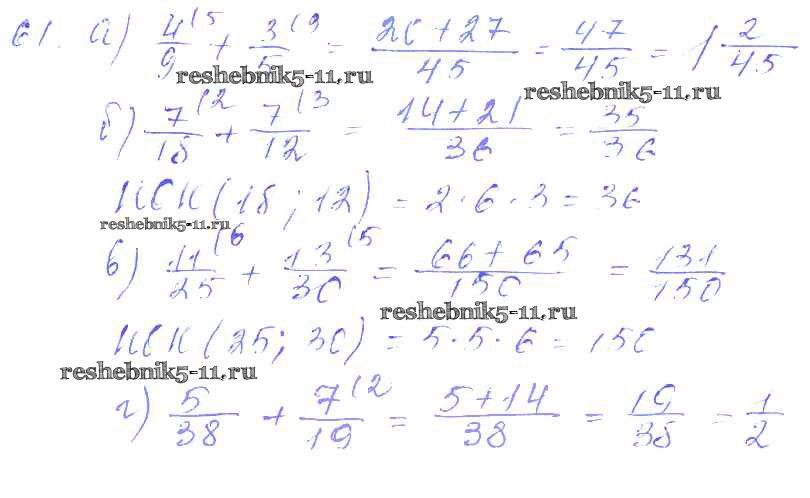 61. а) 4/9 (5 + 3/5 (9 = 20+27/45 = 47/45 = 1 2/45
reshebnik5-11.ru
reshebnik5-11.ru
б) 7/18 (2 + 7/12 (3 = 14+21/36 = 35/36
НСК (18; 12) = 2·6·3 = 36
reshebnik5-11.ru
в) 11/25 (6 + 13/30 (5 = 66+65/150 = 131/150
reshebnik5-11.ru
НСК (25; 30) = 5·5·6 = 150
reshebnik5-11.ru
г) 5/38 + 7/19 (2 = 5+14/38 = 19/38 = 1/2